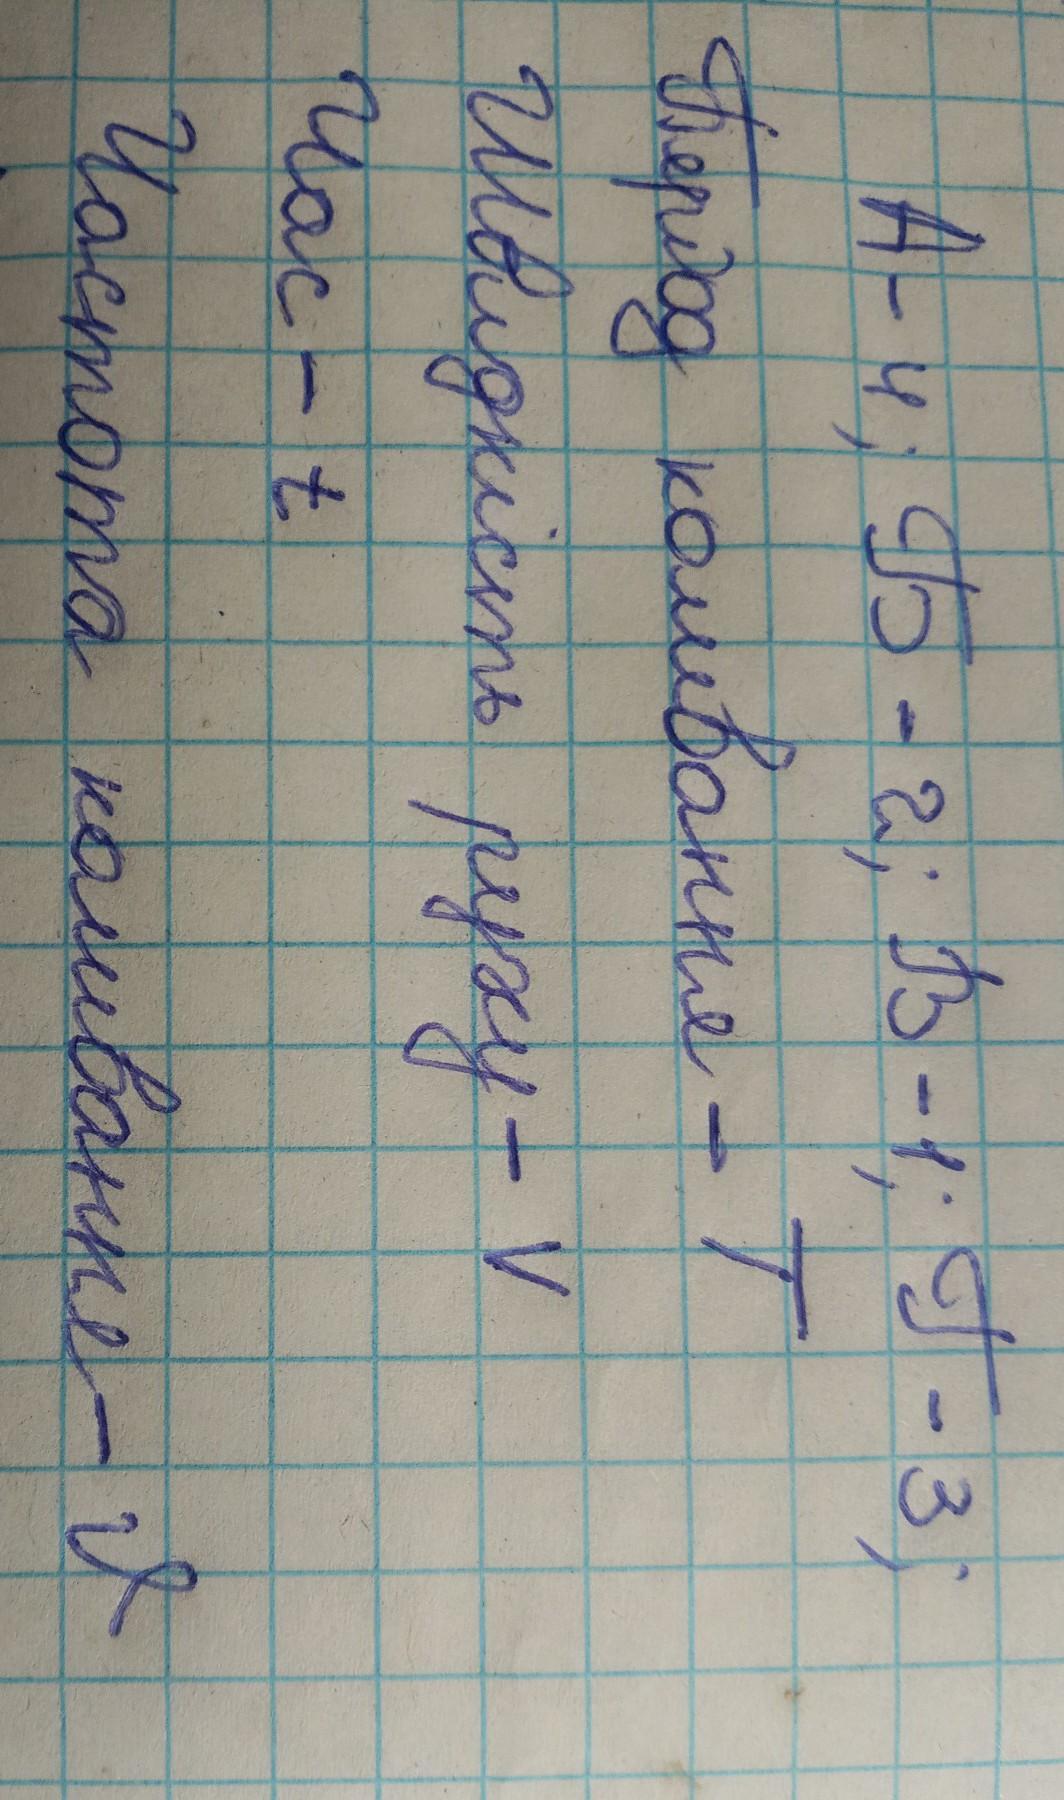 А - 4; Б - 2; В - 1; Г - 3;
Період коливання - Т
Швидкість руху - V
Час - t
Частота коливання - ν